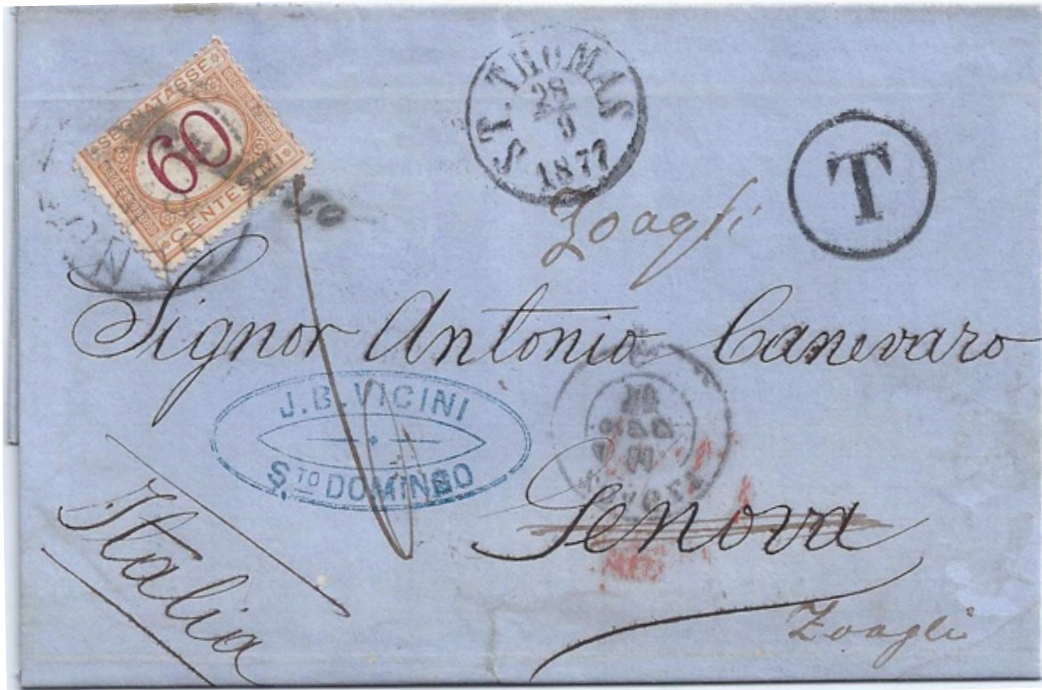 SEGNATASSE
60
CENTESIMI
ST. THOMAS
28
9
1877
T
Zoagli
Signor Antonio Canevaro
J. B. VICINI
STO DOMINGO
Genova
Italia
Zoagli